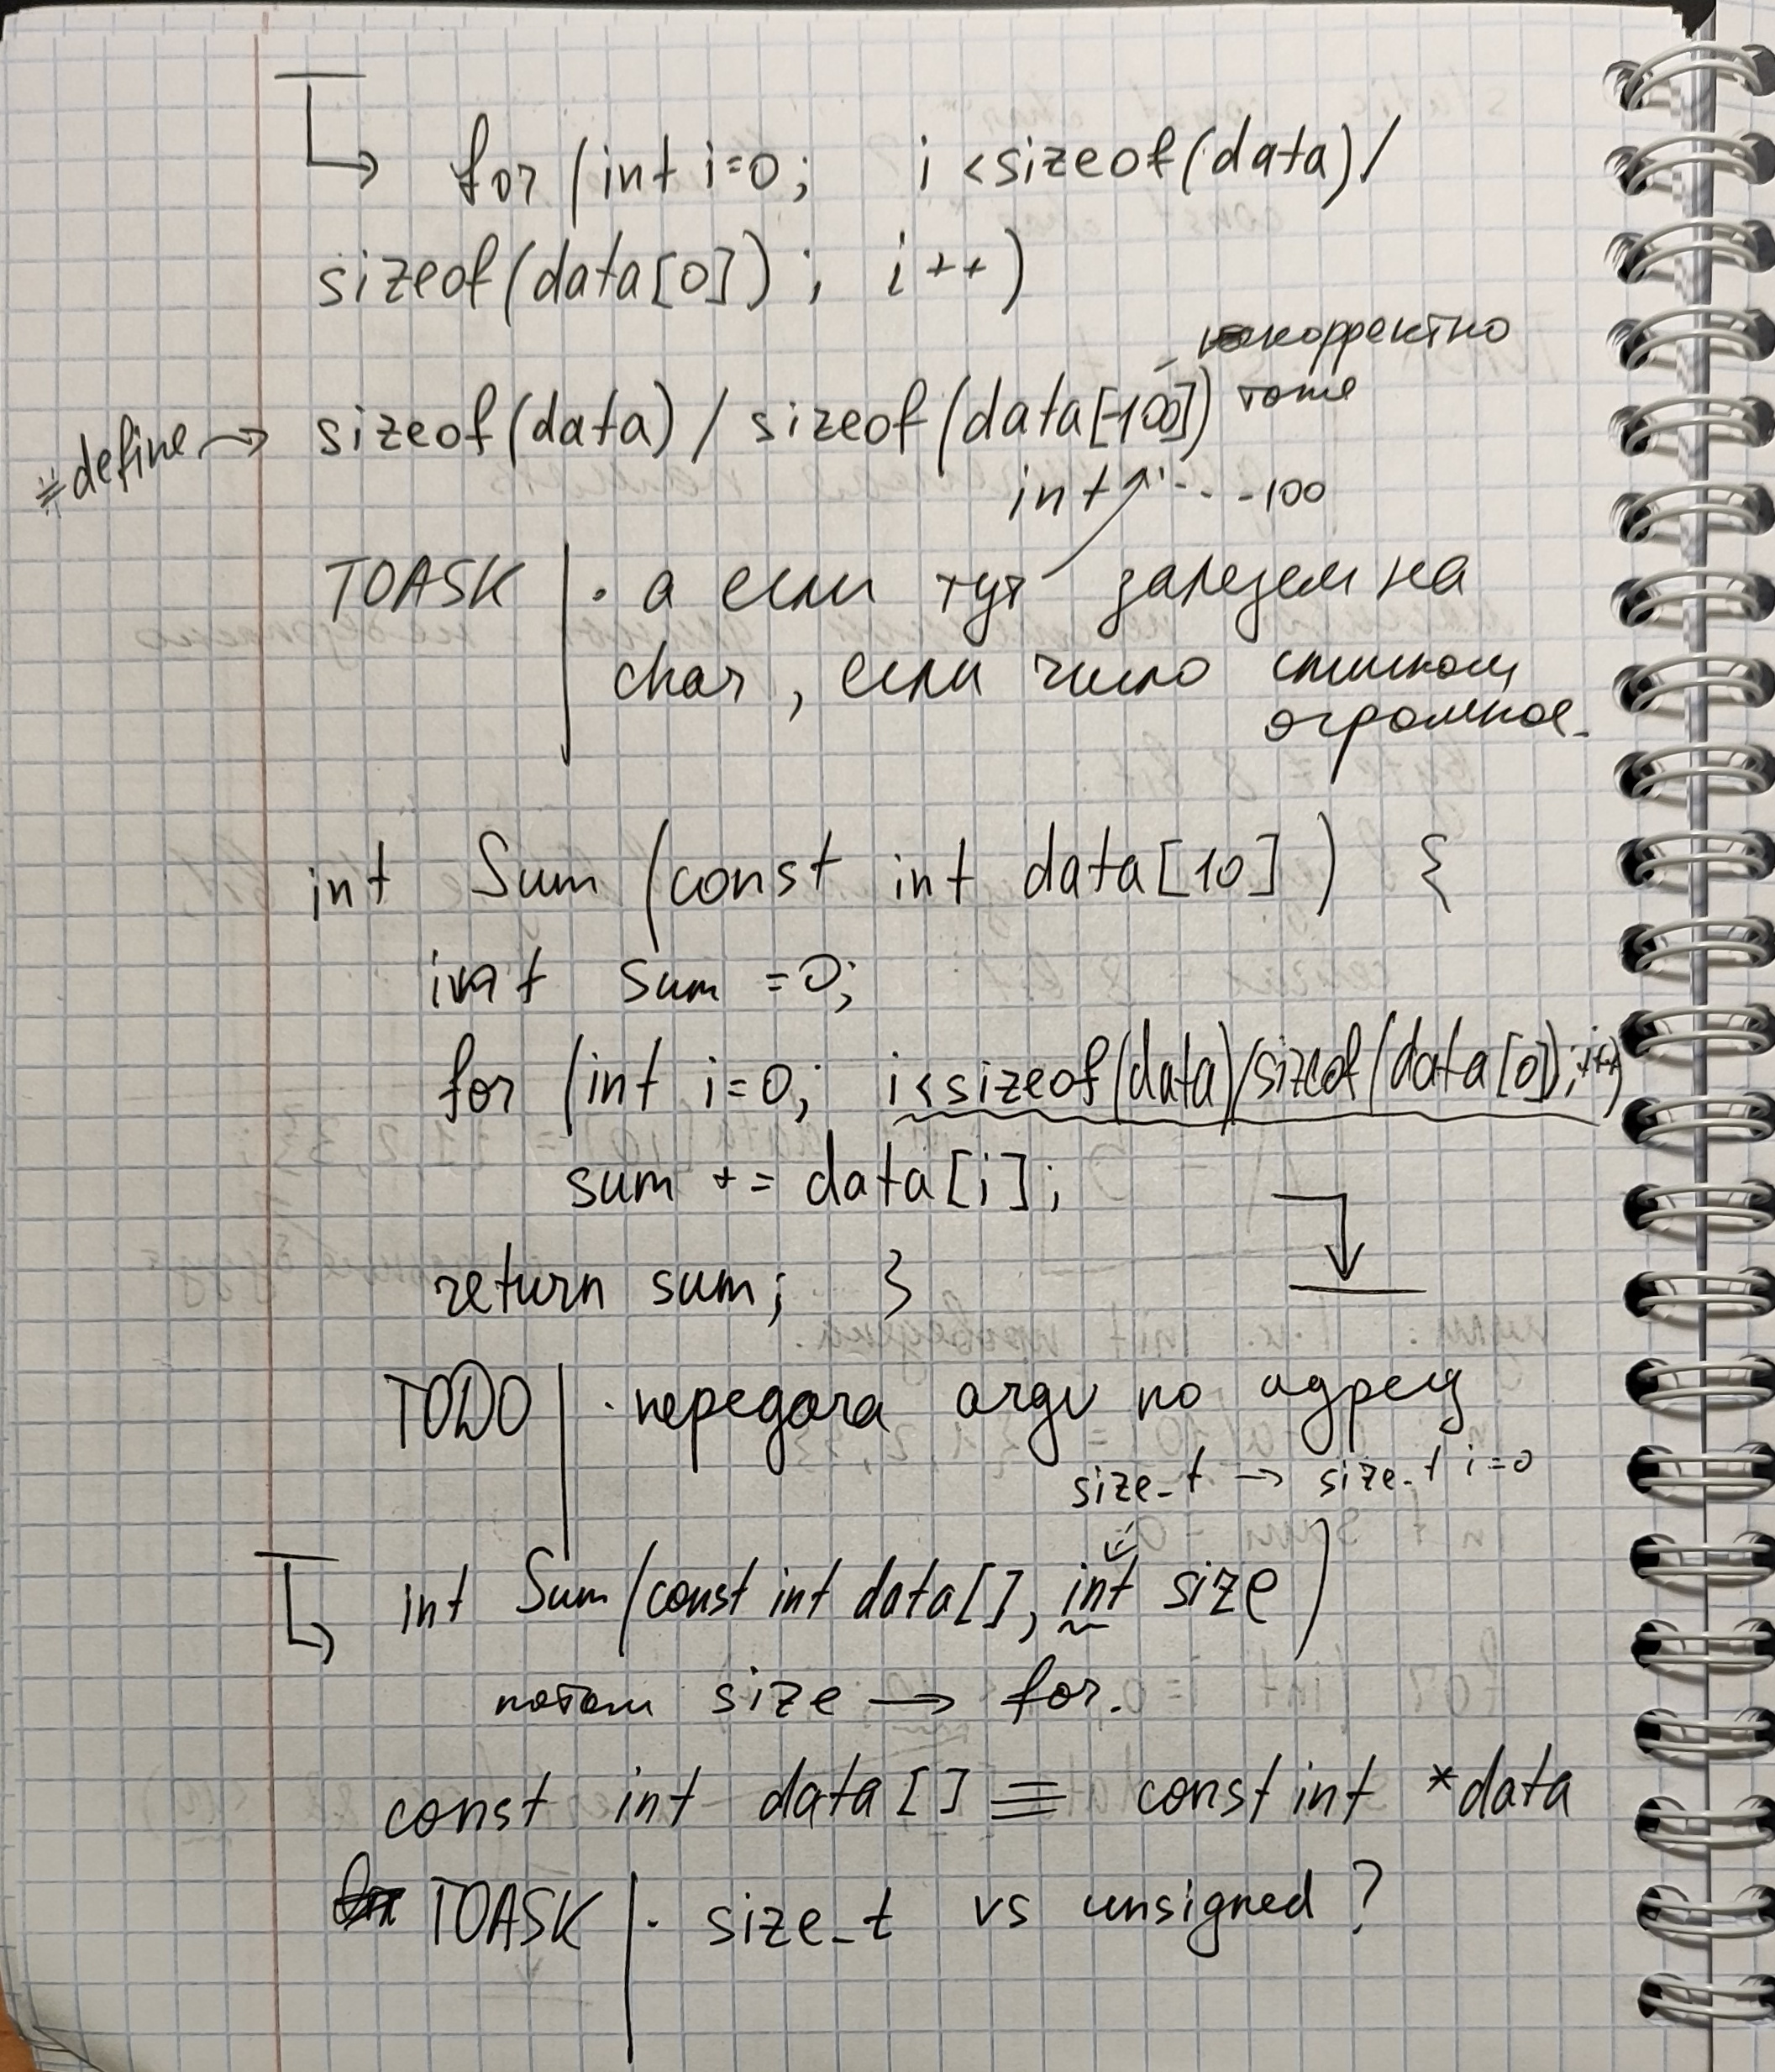 for (int i=0; i <sizeof(data)/
sizeof(data[0]); i++)
корректно
тоже
#define → sizeof(data) / sizeof(data[-100])
int ... -100
TOASK | · а если тут залезем на
char, если число слишком
огромное.
int Sum (const int data[10]) {
int sum =0;
for (int i=0; i<sizeof(data)/sizeof(data[0]); i++)
sum += data[i];
return sum; }
TODO | · передача argv по адресу
size_t → size_t i=0
int Sum (const int data[], int size)
потом size → for.
const int data[] ≡ const int *data
TOASK | · size_t vs unsigned?